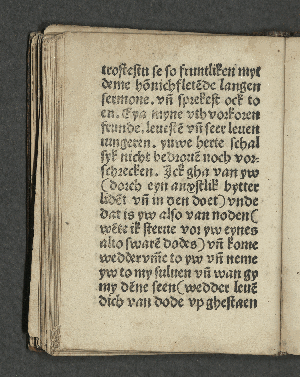 trostestu se so fruntliken myt
deme hōnichfletēde langen
sermone. vñ sprekest ock to
en. Eya myne vthvorkoren
frunde, leuestē vñ seer leuen
iungeren. yuwe herte schal
syk nicht bedrouē noch vor-
schrecken. Ick gha van yw
(dorch eyn anxstlik bytter
lidēt vñ in den doet) vnde
dat is yw also van noden (
wēte ik sterue vor yw eynes
alto swarē dodes) vñ kome
weddervm̄e to yw vñ neme
yw to my suluen vñ wan gy
my dēne seen (wedder leuē
dich van dode vp ghestaen